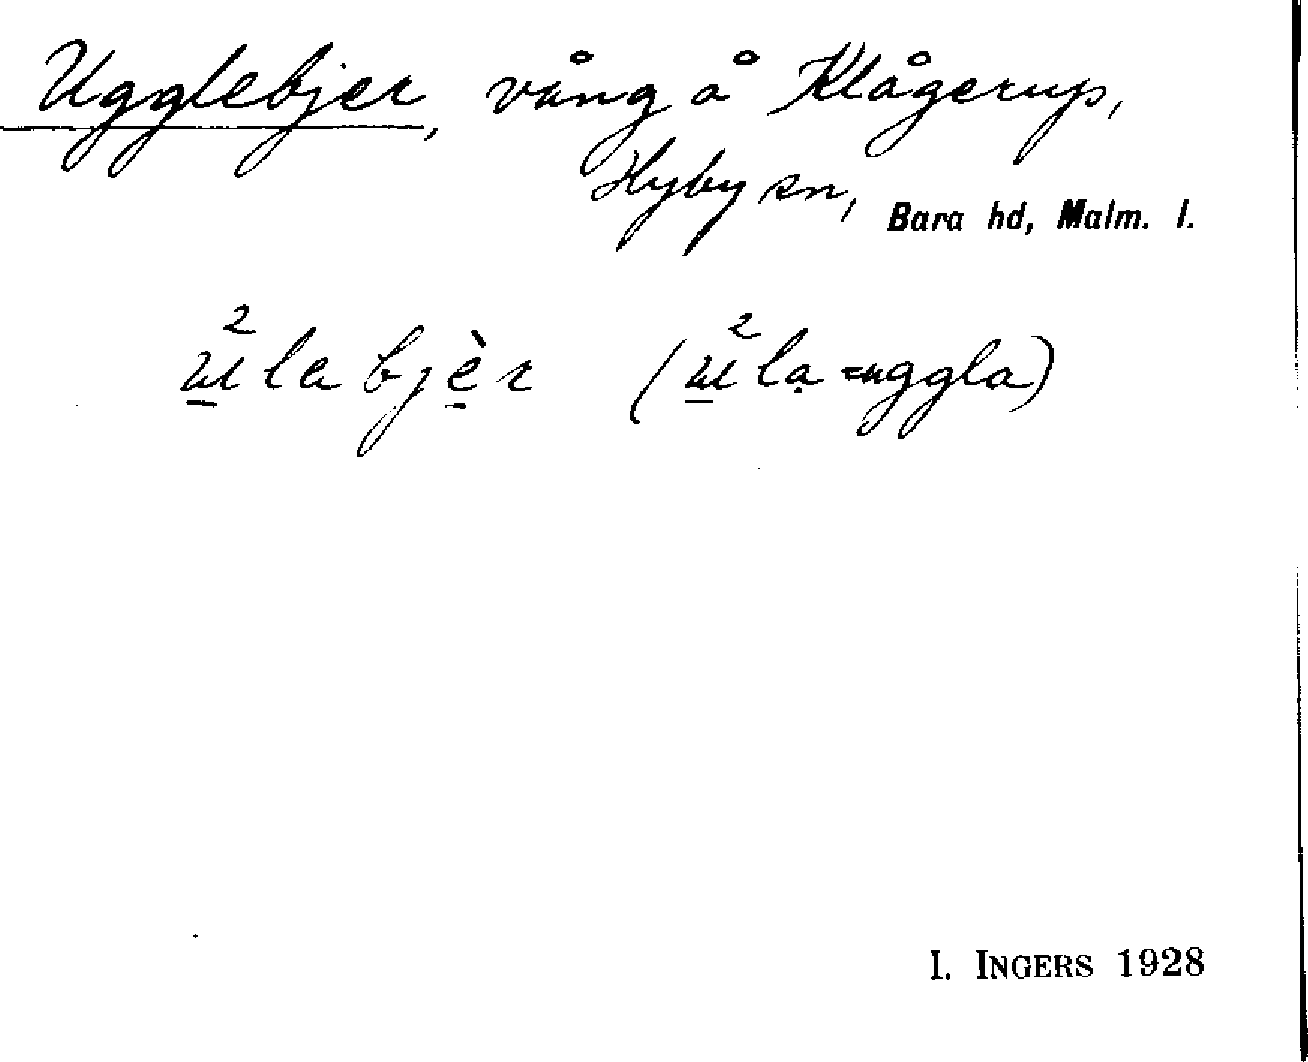 Ugglebjer, vång å Klågerup,
Hyby sn, Bara hd, Malm. l.
²ulabjèr (²ula = uggla)
I. INGERS 1928